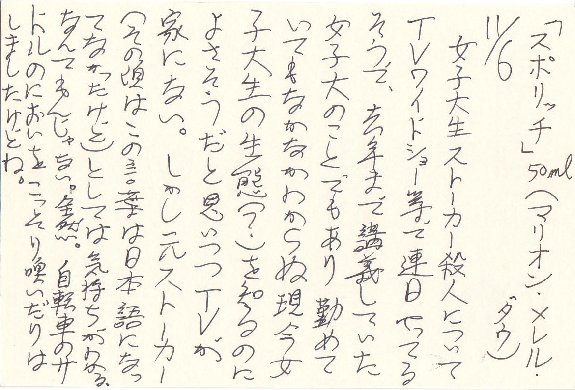 「スポリッチ」50ml(マリオン・メレル・
ダウ)
11/6
女子大生ストーカー殺人について
TVワイドショー等で連日やってる
そうで、去年まで講義していた
女子大のことでもあり勤めて
いてもなかなかわからぬ現今女
子大生の生態(?)を知るのに
よさそうだと思いつつTVが
家にない。しかし元ストーカー
(その頃はこの言葉は日本語になっ
てなかったけど)としては気持ちがわかる、
なんてもんじゃない。全然。自転車のサ
ドルのにおいをこっそり嗅いだりは
しましたけどね。